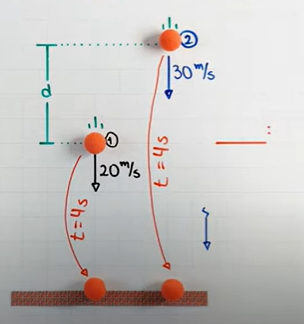 ②
30 m/s
d
①
20 m/s
t = 4s
t = 4s